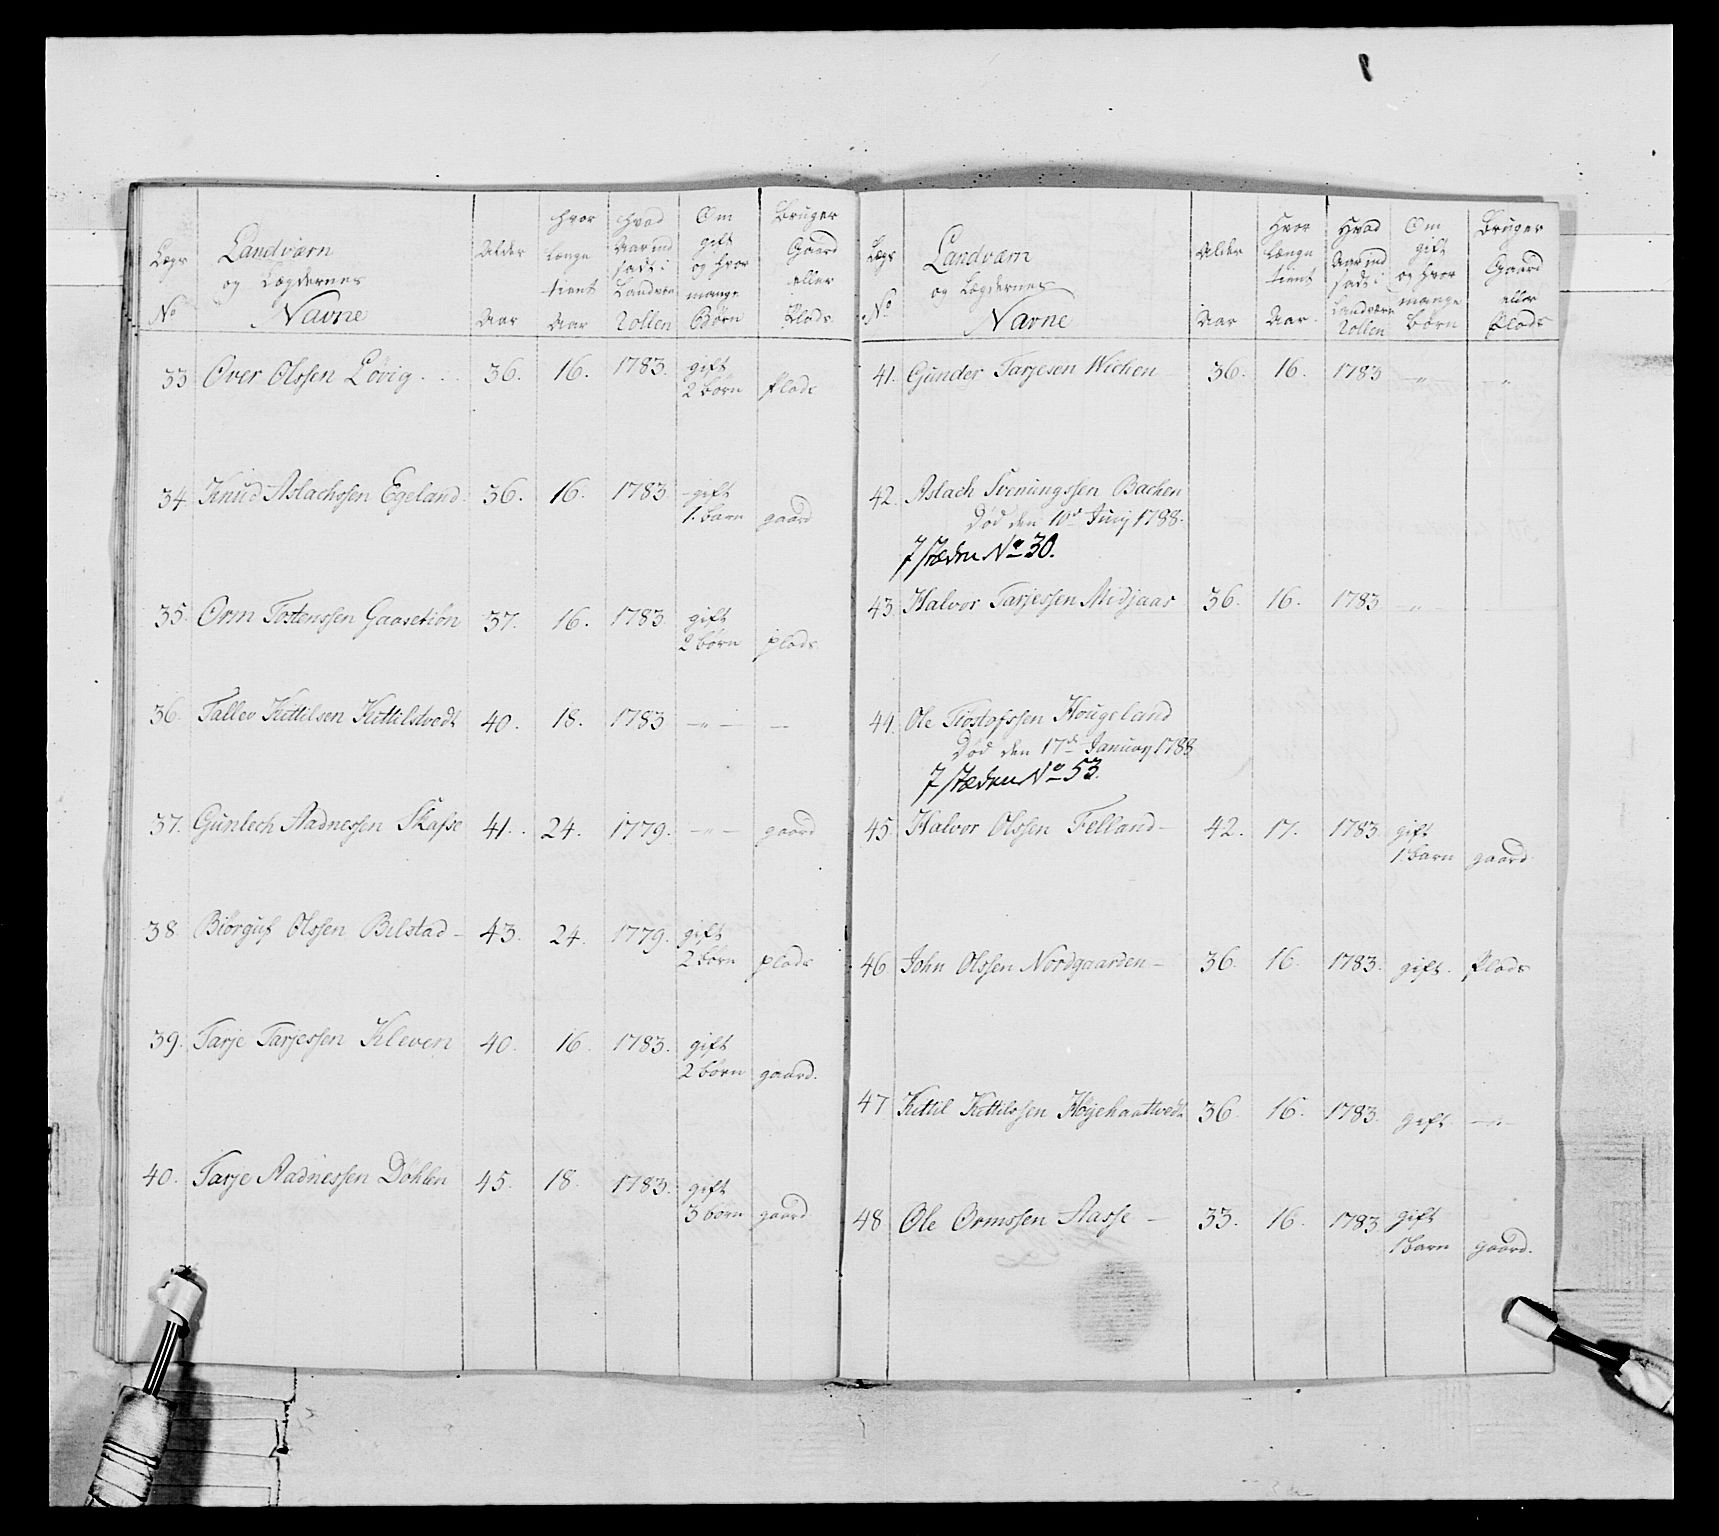 Lægs No
Landværn og Lægdernes Navne
Alder Aar
hvor længe tient Aar
hvad Aar ind sadt i Landværn Rollen
Om gift og hvor mange Børn
Bruger Gaard eller Plads
33 Over Olssen Lövig . . . 36. 16. 1783. gift
2 börn plads
34 Knud Aslachssen Egeland. 36. 16. 1783 gift
1. barn gaard
35. Orm Tostenssen Gaasetion 37. 16. 1783. gift
2 börn plads
36. Tallev Kittilsen Kittilstvedt 40. 18. 1783 — " — —
37. Gunlech Aadnessen Skafse 41. 24. 1779. — " — gaard
38. Biörguf Olssen Bilstad — 43. 24. 1779. gift
2 börn plads
39. Tarje Tarjessen Kleven 40. 16. 1783. gift
2 börn gaard.
40. Tarje Aadnessen Döhlen 45. 18. 1783. gift
3 börn gaard
Lægs No
Landværn og Lægdernes Navne
Alder Aar
Hvor længe tient Aar.
Hvad Aar ind sadt i Landværn Rollen
Om gift og hvor mange börn
Bruger Gaard eller Plads
41. Gunder Tarjesen Wichen 36. 16. 1783 — " — — "
42. Aslach Svenungssen Bachen
Död den 10d Juny 1788.
I stæden No 30.
43 Halvor Tarjessen Midjaas 36. 16. 1783 — " —
44. Ole Tiostofssen Hougeland
Död den 17d January 1788
I stæden No 53.
45 Halvor Olssen Felland — 42. 17. 1783. gift
1. barn gaard
46 John Olssen Nordgaarden — 36. 16. 1783. gift. Plads
47 Kittil Kittilssen Höjehaattvedt 36. 16. 1783. gift — " —
48 Ole Ormssen Aasse — 33. 16. 1783 gift
1 barn gaard.